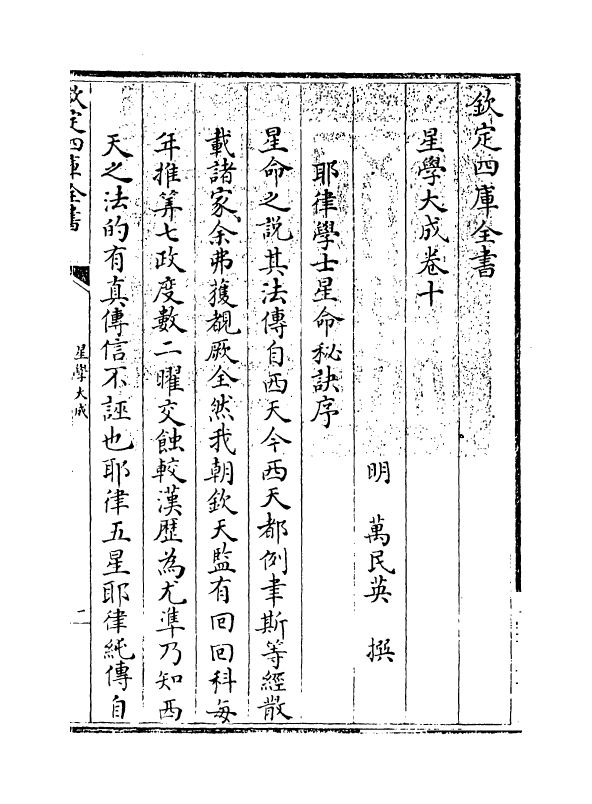 欽定四庫全書
星學大成卷十
明 萬民英 撰
耶律學士星命秘訣序
星命之說其法傳自西天今西天都例聿斯等經散
載諸家余弗獲覩厥全然我朝欽天監有回回科每
年推筭七政度數二曜交蝕較漢歴為尤準乃知西
天之法的有真傳信不誣也耶律五星耶律純傳自
欽定四庫全書
星學大成
一